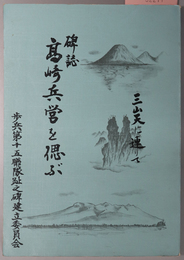 碑誌
高崎兵営を偲ぶ
三山天に連て
歩兵第十五聯隊趾之碑建立委員会